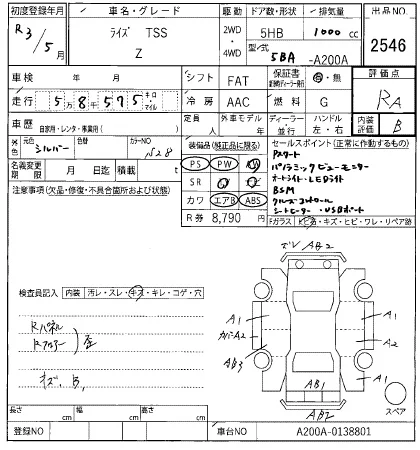 初度登録年月
車名・グレード
駆動
ドア数・形状
排気量
出品NO
R3/5月
ライズ TSS
Z
2WD
・
4WD
5HB
1000 cc
型式
5BA -A200A
2546
車検 年 月
シフト
FAT
保証書
有・無
評価点
走行
5万8千575
キロ
マイル
冷房
AAC
燃料
G
RA
車歴
自家用・レンタ・事業用( )
定員
人
外車モデル
年
ディーラー
並行
ハンドル
左・右
内装評価
B
外色
元色
シルバー
色替
カラーNO
S28
装備品(純正品に限る)
PS PW AW
SR
カワ エアB ABS
R券 8,790 円
セールスポイント(正常に作動するもの)
Pスタート
パノラミックビューモニター
オートライト・LEDライト
BSM
クルーズコントロール
シートヒーター・USBポート
名義変更期限
月 日迄
積載 t
注意事項(欠品・修復・不具合箇所および状態)
Fガラス
キズ・ヒビ・ワレ・リペア跡
ズレ AB2
検査員記入
内装
汚レ・スレ・キズ・キレ・コゲ・穴
Rパネル
Rフロアー
歪
キズ、B,
A1
カバーA2
AB3
A1
A2
A1
AB1
AB2
スペア
長さ cm
幅 cm
高さ cm
登録NO
車台NO
A200A-0138801